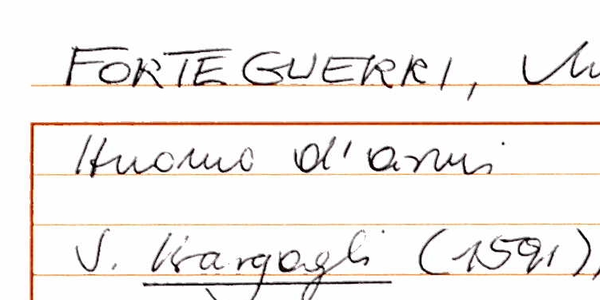 FORTEGUERRI,
Huomo d'armi
V. Bargagli (1591),